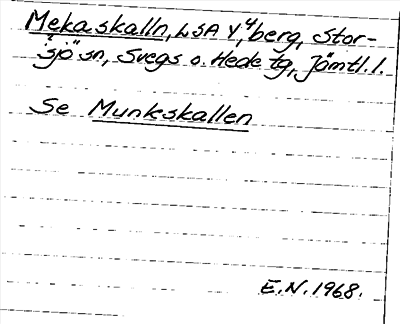 Mekaskalln, LSA Y,4 berg, Stor-
sjö sn, Svegs o. Hede tg, Jämtl. l.
Se Munkskallen
E.N. 1968.